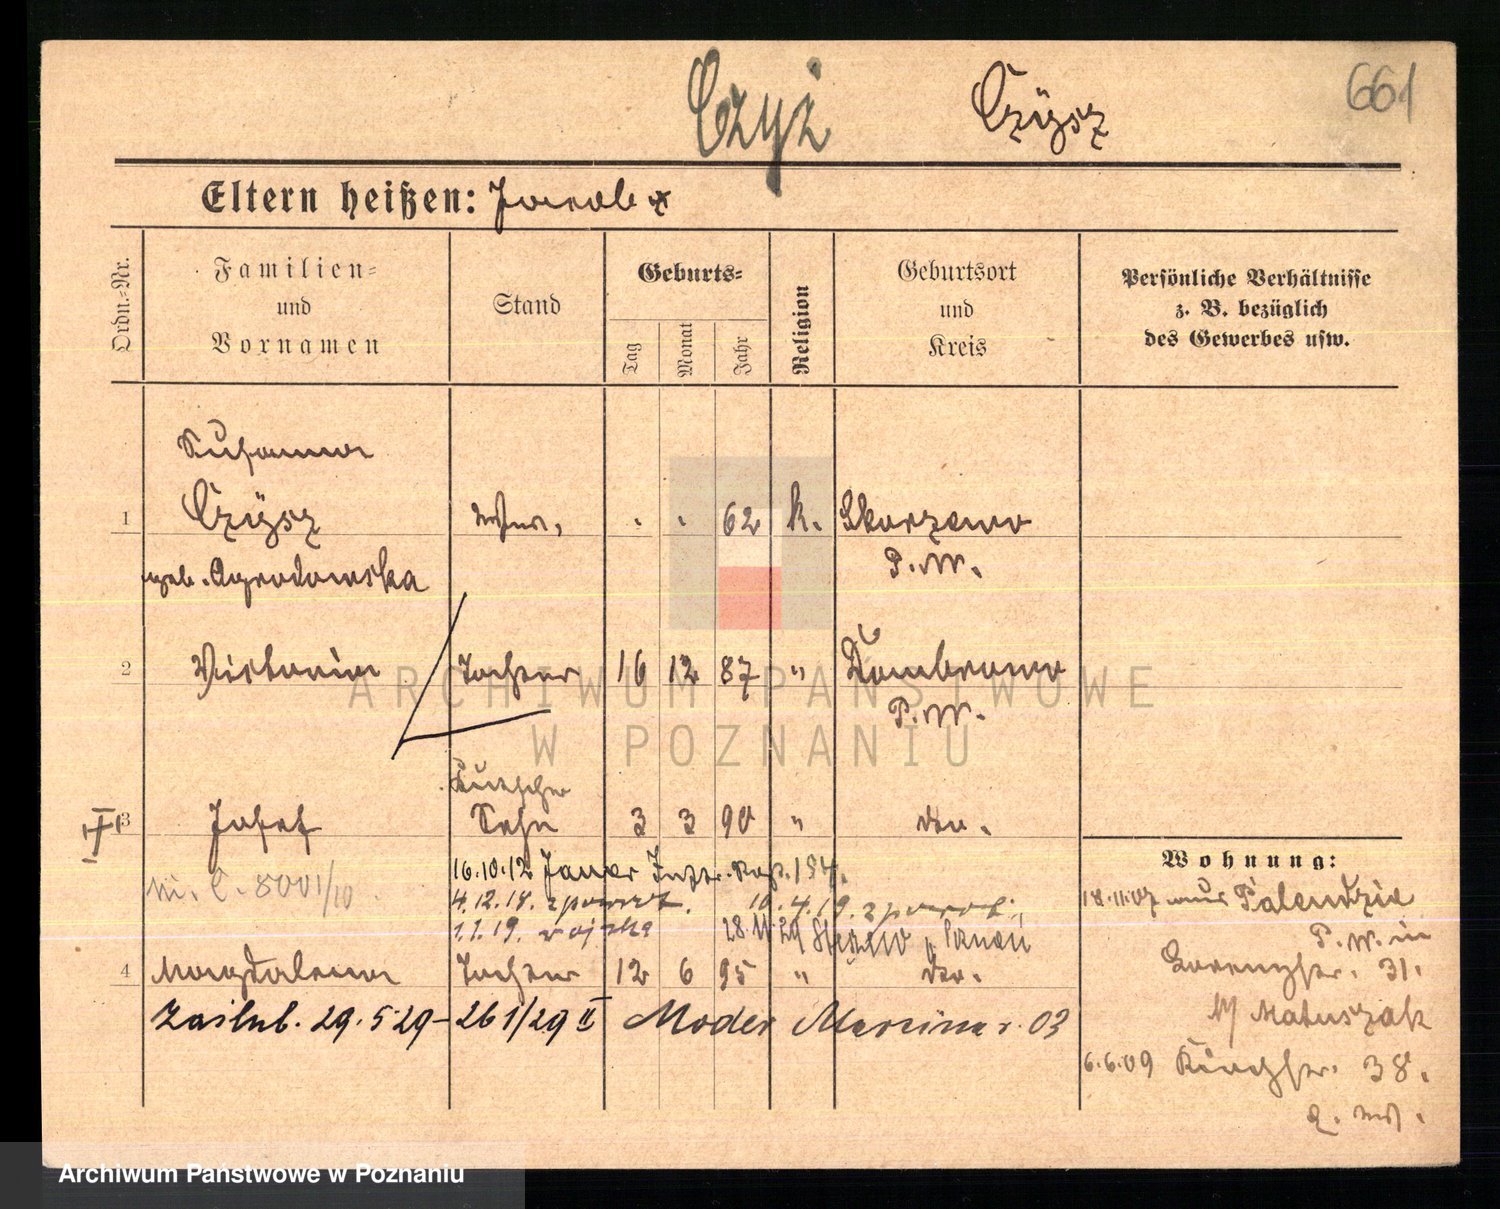 Czyż Czÿsz 661
Eltern heißen: Jacob
Ordn.-Nr.
Familien-
und
Vornamen
Stand
Geburts-
Tag
Monat
Jahr
Religion
Geburtsort
und
Kreis
Persönliche Verhältnisse
z. B. bezüglich
des Gewerbes usw.
Susanna
1 Czÿsz . . 62 k. Skorzewo
geb. Agrodowska P. W.
2 Victoria Tochter 16 12 87 " Dombrowo
P. W.
Kutscher
3 Josef Sohn 3 3 90 " do.
8001/10
16.10.12 Janer Inftr. Rgt. 154.
4.12.18. z powrot. 10.4.19. z powrot.
1.1.19. wojska 28.11.29
4 Magdalena Tochter 12 6 95 " do.
Zaślub. 29.5.29 - 261/29 II Moder Marcina r. 03
Wohnung:
18.11.07 aus Palendzie
P. W. in
Lorenzstr. 31.
b/ Matuszak
6.6.09 Kirchstr. 38.
ARCHIWUM PAŃSTWOWE
W POZNANIU
Archiwum Państwowe w Poznaniu